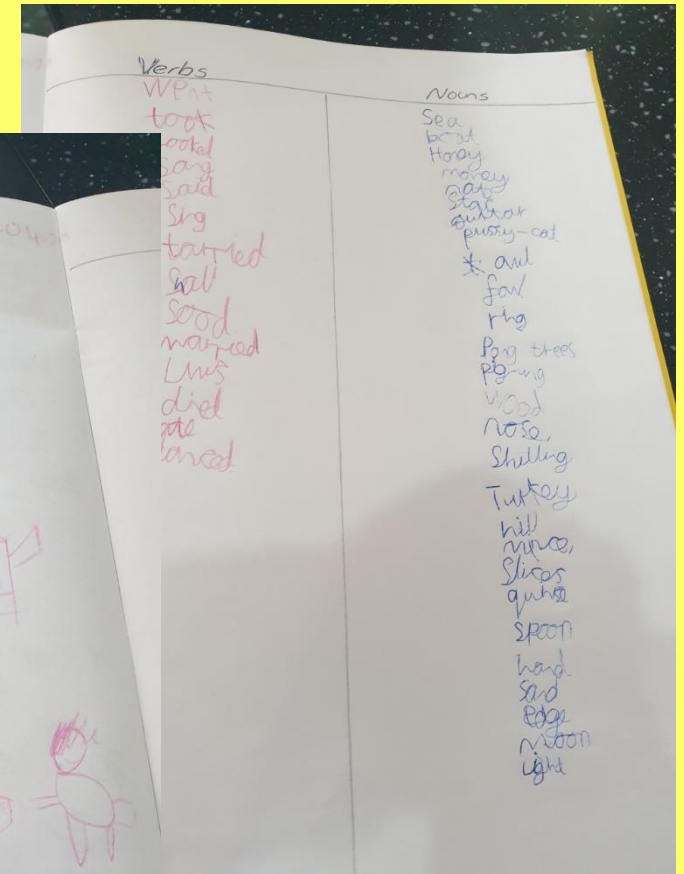 Verbs
Went
took
ooked
sang
said
Sing
tarried
Sall
Sood
married
Lives
died
ate
anced
Nouns
Sea
boat
Honey
money
Stars
guitar
pussy-cat
owl
fowl
ring
Pong trees
Pig-wig
Wood
nose,
Shilling
Turkey
hill
mince,
Slices
quince
spoon
hand
Sand
edge
moon
light